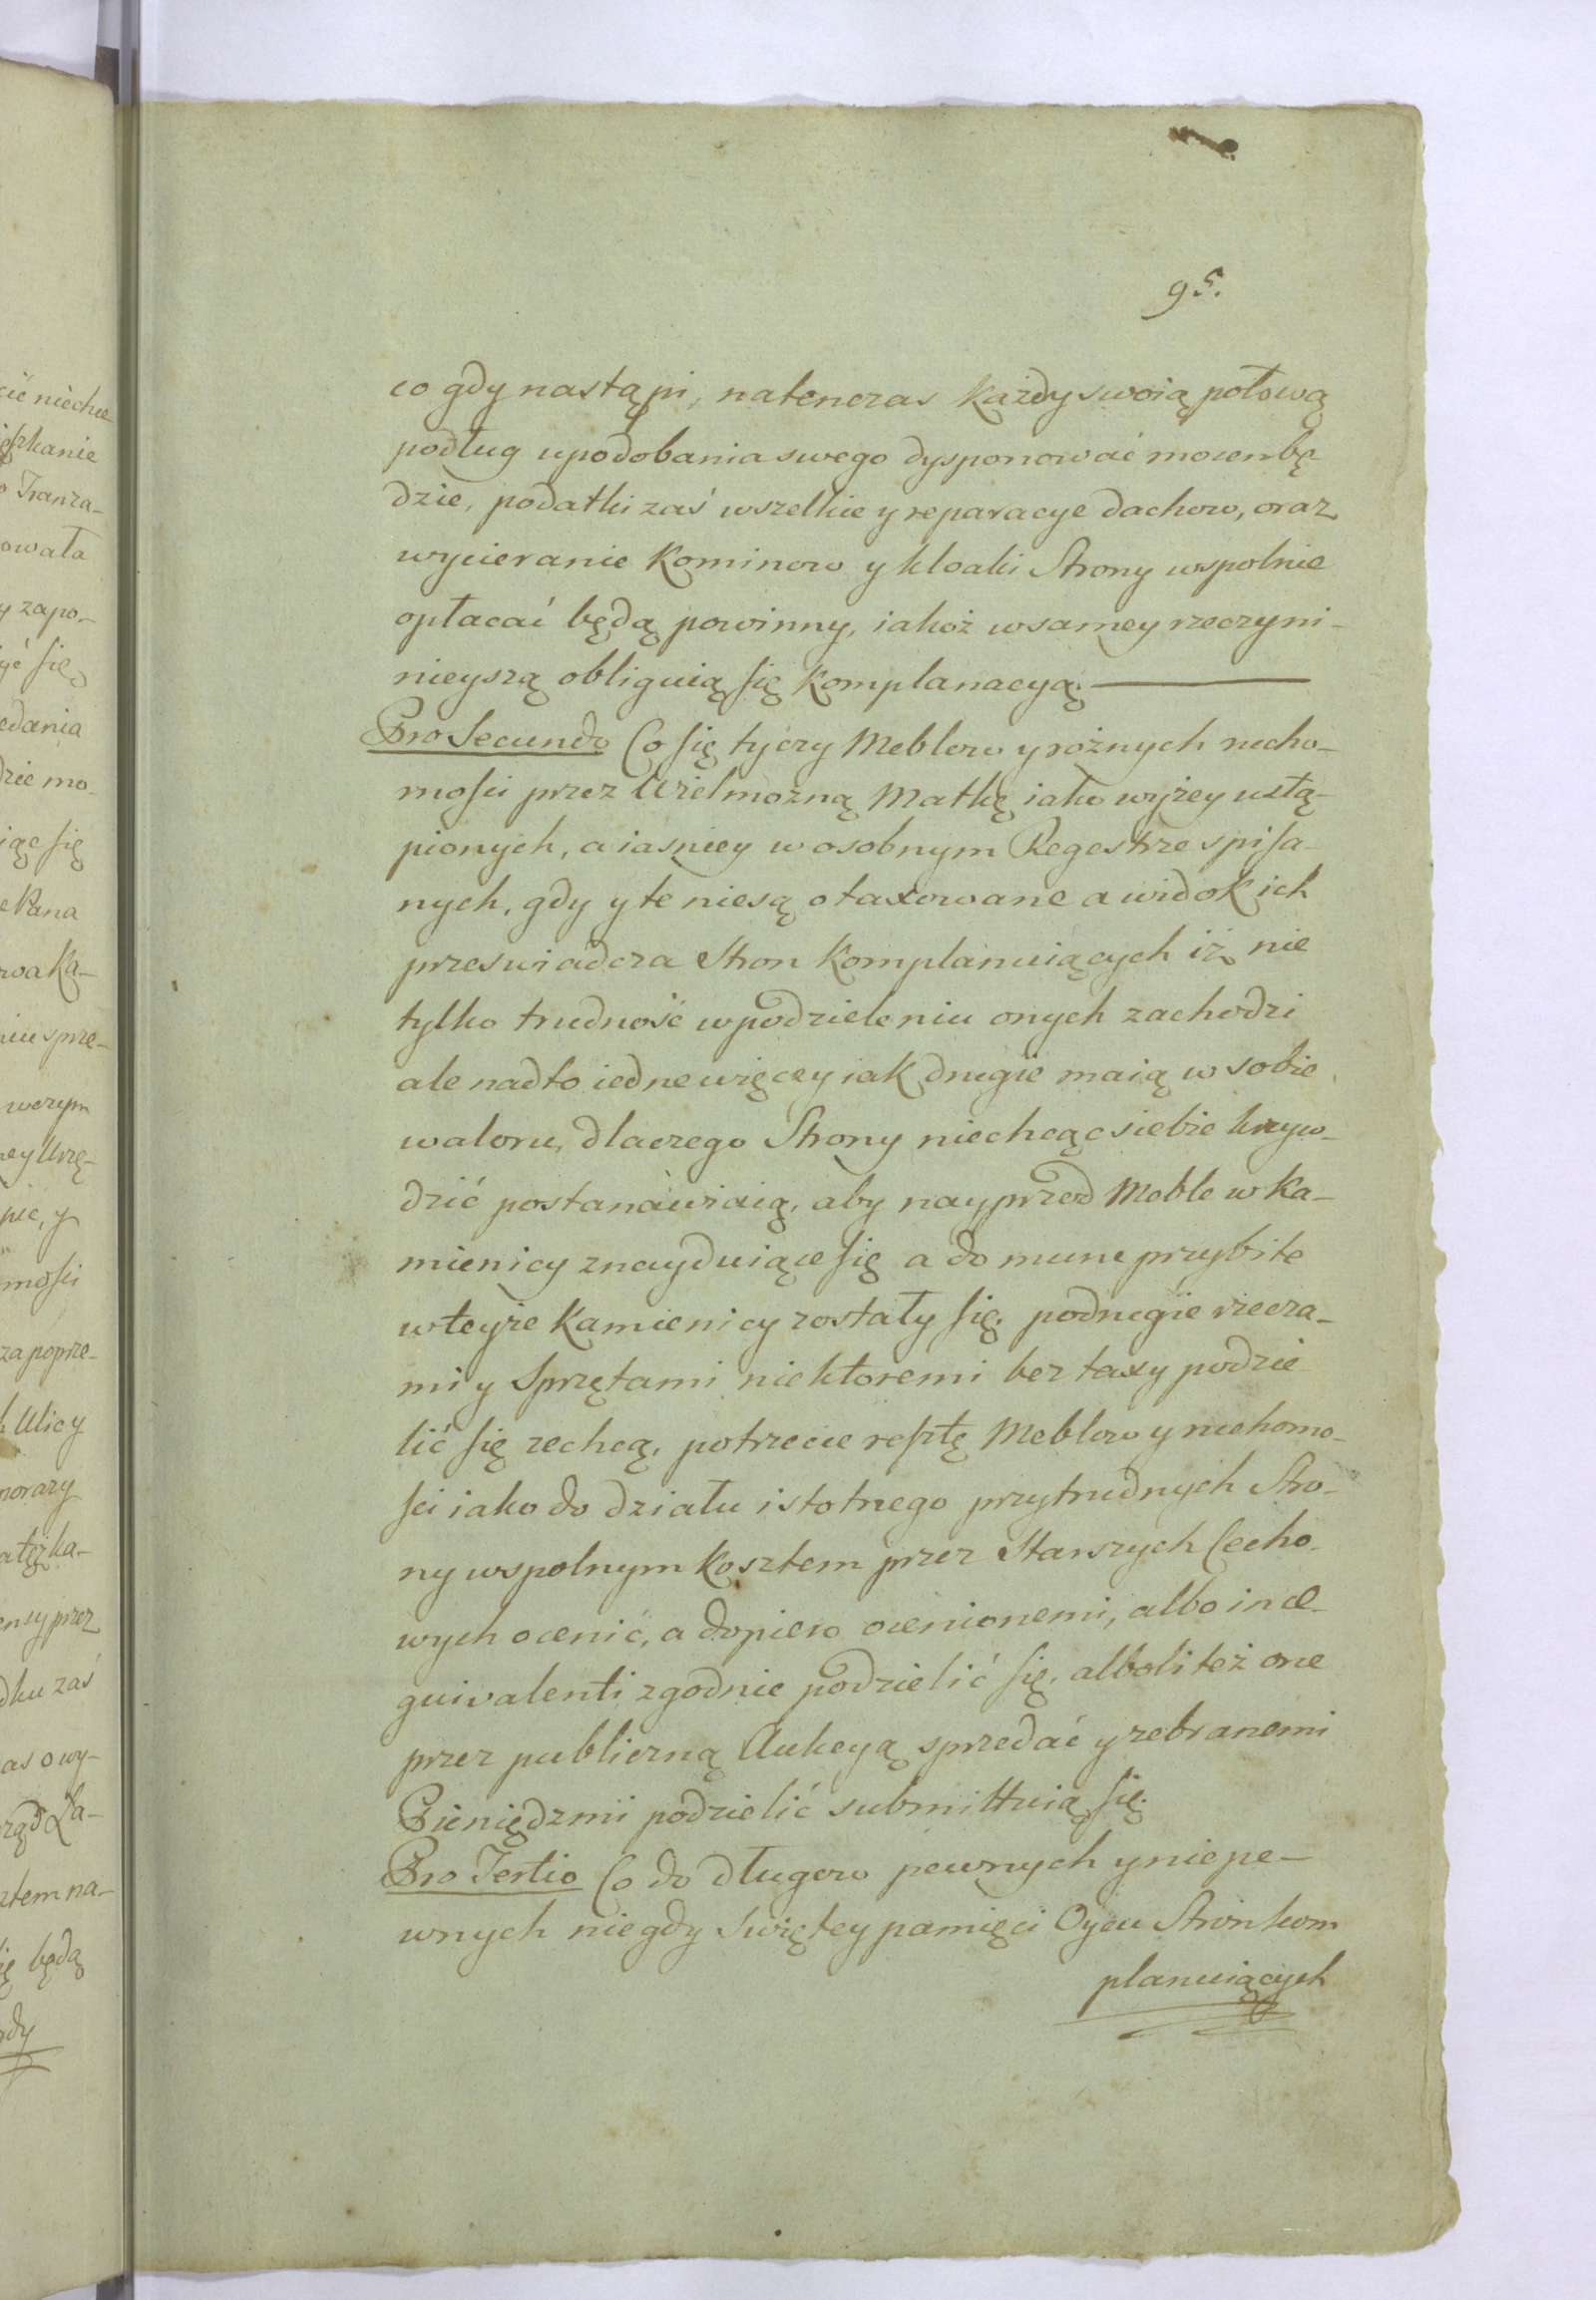 95.
co gdy nastąpi, natenczas każdy swoią połową
podług upodobania swego dysponować mocen bę
dzie, podatki zaś wszelkie y reparacye dachow, oraz
wycieranie Kominow y kloaki Strony wspolnie
opłacać będą powinny, iakoż w samey rzeczy ni-
nieyszą obliguią się Komplanacyą.
Pro Secundo Co się tyczy Meblow y rożnych rucho-
mości przez Wielmożną Matkę iako wyżey ustą-
pionych, a iasniey w osobnym Regestrze spisa
nych, gdy y te niesą otaxowane a widok ich
przeswiadcza Stron Komplanuiących iż nie
tylko trudność w podzieleniu onych zachodzi
ale nadto iedne więcey iak drugie maią w sobie
waloru, dlaczego Strony niechcąc siebie krzyw-
dzić postanawiaią, aby nayprzod Meble w Ka-
mienicy znayduiące się a do muru przybite
w teyże Kamienicy zostały się. podrugie rzecza-
mi y Sprzętami niektoremi bez taxy podzie
lić się zechcą, potrzecie resztę Meblow y ruchomo-
ści iako do działu istotnego przytrudnych Stro-
ny wspolnym Kosztem przez Starszych Cecho-
wych ocenić, a dopiero ocenionemi, albo in æ-
quivalenti zgodnie podzielić się, alboli też one
przez publiczną Aukcyą sprzedać y zebranemi
Pieniędzmi podzielić submittuią się.
Pro Tertio Co do długow pewnych y niepe-
wnych niegdy Swiętey pamięci Oycu Stron kom
planuiących

cić niechce
ięszkanie
o Tranza-
owała
y zapo-
yć się
edania
dzie mo-
iąc się
e Pana
wa Ka-
niu sprze-
w czym
ney Urzę-
nie, y
mości
za poprze-
k Ulicy
norazy
atęż ka-
ency przez
dku zaś
as o wy-
rząd Za-
ztem na-
ię będą
żdy